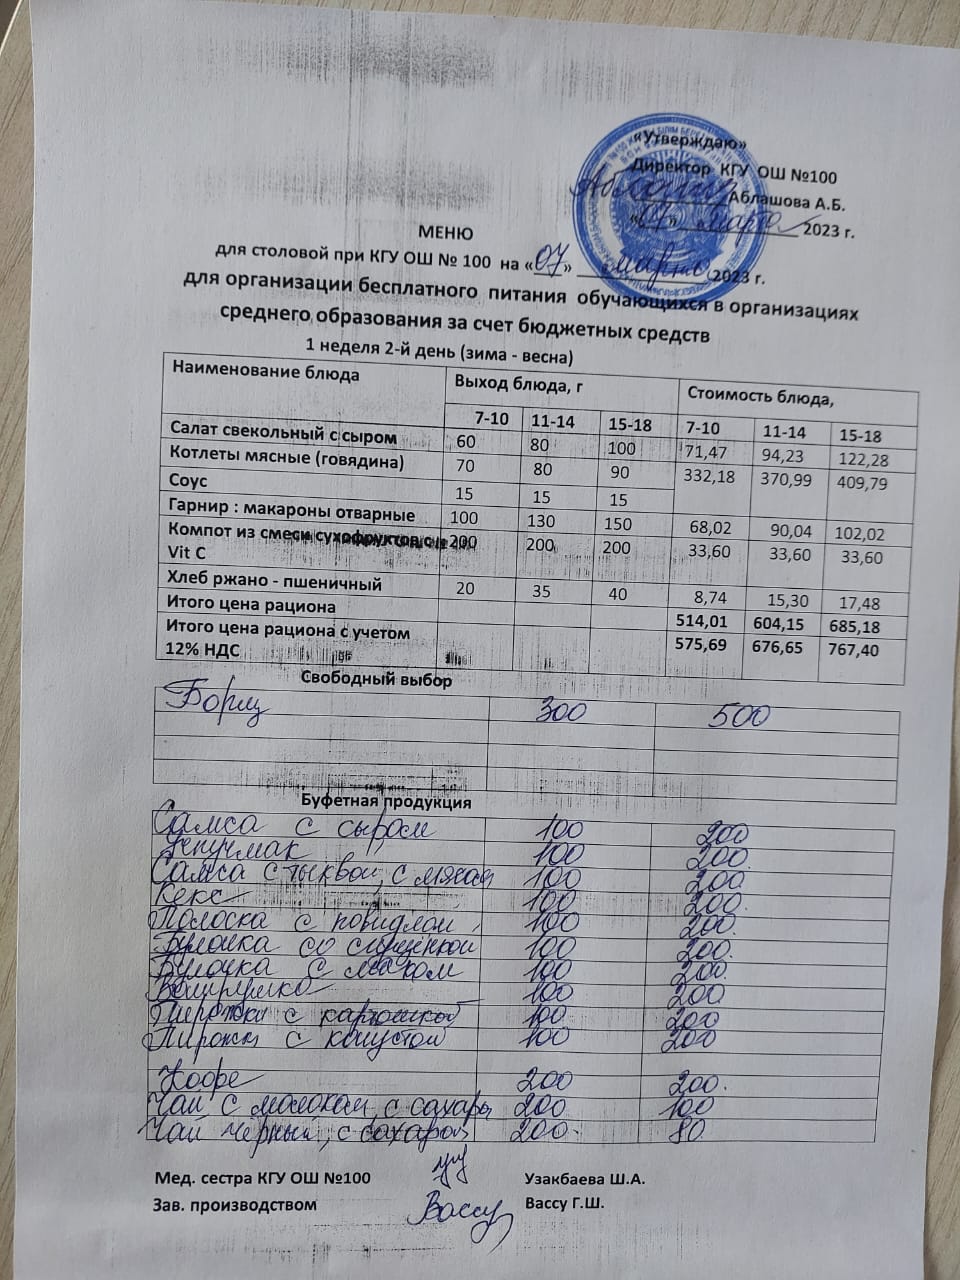 «Утверждаю»
Директор КГУ ОШ №100
Аблашова А.Б.
«07» марта 2023 г.
МЕНЮ
для столовой при КГУ ОШ № 100 на «07» марта 2023 г.
для организации бесплатного питания обучающихся в организациях
среднего образования за счет бюджетных средств
1 неделя 2-й день (зима - весна)
Наименование блюда Выход блюда, г Стоимость блюда,
7-10 11-14 15-18 7-10 11-14 15-18
Салат свекольный с сыром 60 80 100 71,47 94,23 122,28
Котлеты мясные (говядина) 70 80 90 332,18 370,99 409,79
Соус 15 15 15
Гарнир : макароны отварные 100 130 150 68,02 90,04 102,02
Компот из смеси сухофруктов с 200 200 200 33,60 33,60 33,60
Vit C
Хлеб ржано - пшеничный 20 35 40 8,74 15,30 17,48
Итого цена рациона 514,01 604,15 685,18
Итого цена рациона с учетом 575,69 676,65 767,40
12% НДС
Свободный выбор
Борщ 300 500
Буфетная продукция
Самса с сыром 100 200
Учпучмак 100 200
Самса с тыквой, с мясом 100 200
Кекс 100 200.
Полоска с повидлом 100 200.
Булочка со сгущёнкой 100 200.
Булочка с маком 100 200.
Ватрушка 100 200
Пирожки с картошкой 100 200
Пирожки с капустой 100 200
Кофе 200 200.
Чай с молоком, с сахаром 200 100
Чай чёрный, с сахаром 200. 80
Мед. сестра КГУ ОШ №100 Узакбаева Ш.А.
Зав. производством Вассу Вассу Г.Ш.